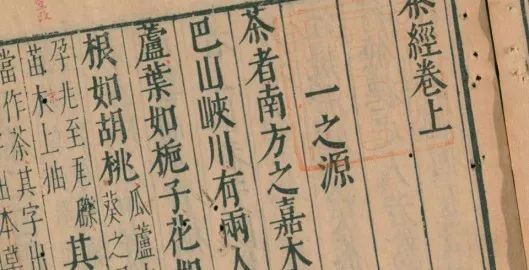 茶經卷上
一之源
茶者南方之嘉木
巴山峽川有兩人
蘆葉如梔子花
根如胡桃
瓜蘆
葵之
孕兆至瓦礫
苗木上抽
其
當作茶其字出
出本草